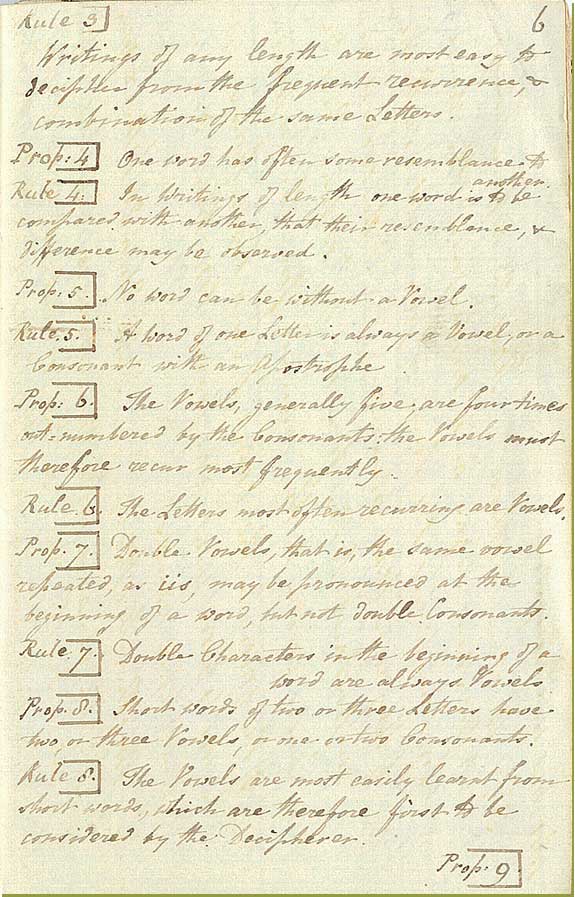 Rule 3
6
Writings of any length are most easy to
decipher from the frequent recurrence, &
combination of the same Letters.
Prop: 4 One word has often some resemblance to
another.
Rule 4. In Writings of length one word is to be
compared with another, that their resemblance, &
difference may be observed.
Prop: 5. No word can be without a Vowel.
Rule. 5. A word of one Letter is always a Vowel, or a
Consonant with an Apostrophe
Prop: 6. The Vowels, generally five, are four times
out=numbered by the Consonants: the Vowels must
therefore recur most frequently.
Rule. 6. The Letters most often recurring are Vowels.
Prop. 7. Double Vowels, that is, the same vowel
repeated, as iis, may be pronounced at the
beginning of a word, but not double Consonants.
Rule. 7. Double Characters in the beginning of a
word are always Vowels
Prop. 8. Short words of two or three Letters have
two, or three Vowels, or one or two Consonants.
Rule 8. The Vowels are most easily learnt from
short words, which are therefore first to be
considered by the Decipherer.
Prop: 9